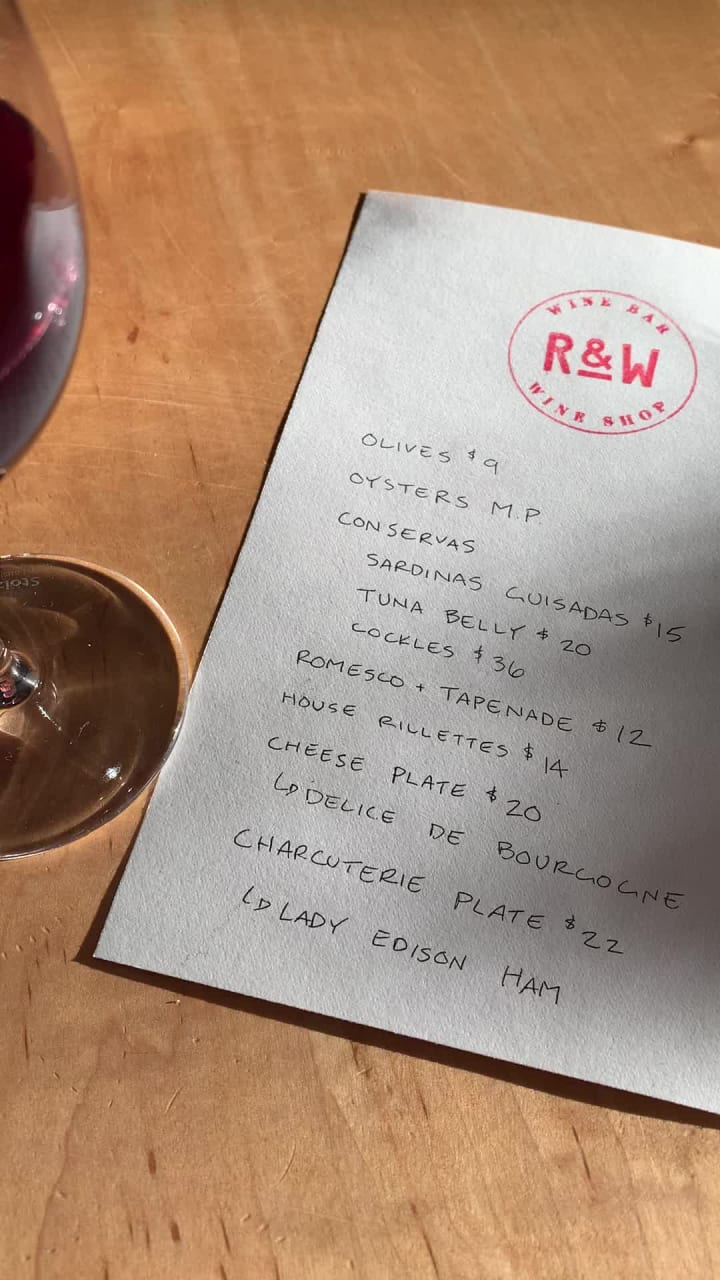 WINE BAR
R&W
WINE SHOP
OLIVES $9
OYSTERS M.P.
CONSERVAS
SARDINAS GUISADAS $15
TUNA BELLY $20
COCKLES $36
ROMESCO + TAPENADE $12
HOUSE RILLETTES $14
CHEESE PLATE $20
↳ DELICE DE BOURGOGNE
CHARCUTERIE PLATE $22
↳ LADY EDISON HAM